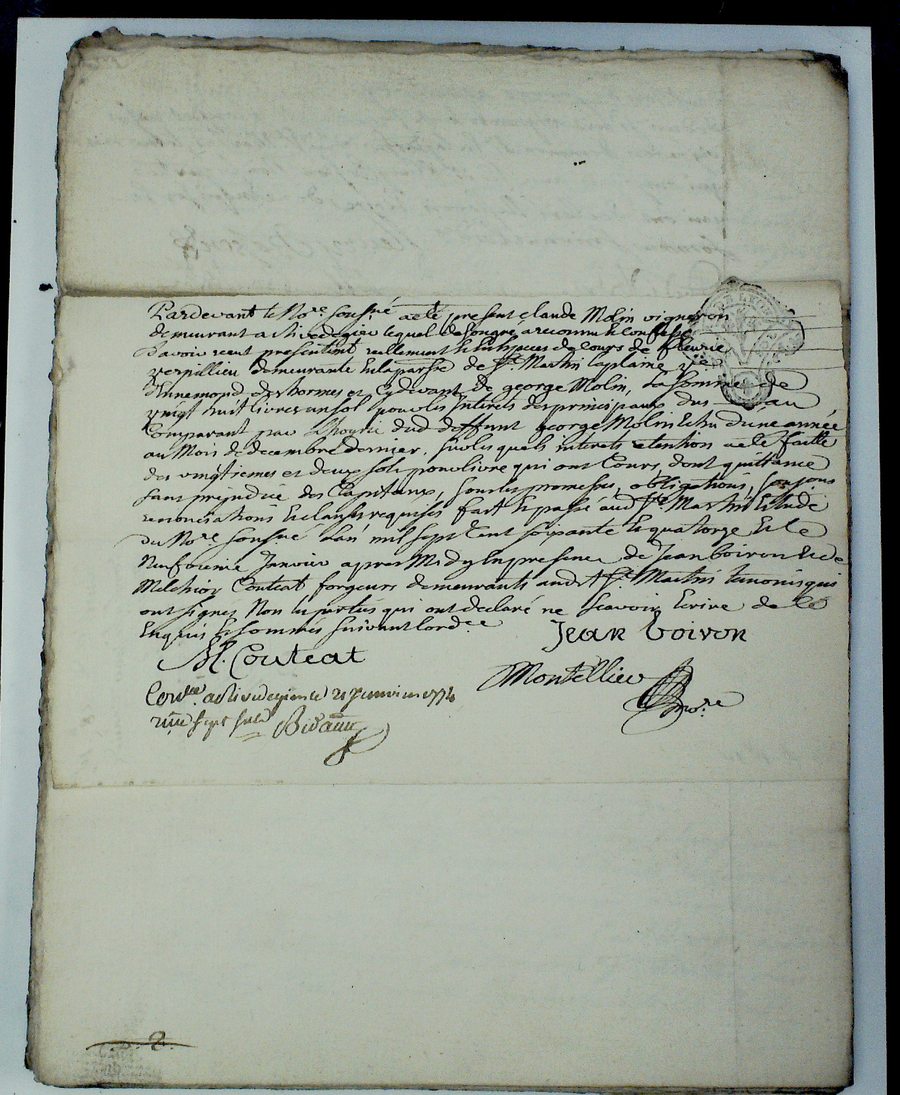 Pardevant le No.re soussné a eté present Claude Molin vigneron
demeurant a Rivedegier lequel de son gré a reconnu et confessé
d'avoir reçut presentement reellement et en especes de cours de fleurie
verpillieu demeurante en la parsse de St. Martin laplaine vve
d'innemond deshormes et cydevant de george Molin, La somme de
vingt huit livres un sol pour les interets des principaux dus au
Comparant par L'hoyrie dud deffunt george Molin Echu d'une année
au Mois de decembre dernier, sur lesquels interets retention a eté faitte
des vingtiemes et deux sols pour livre qui ont Cours, dont quittance
sans prejudice des Capitaux, sous les promesses, obligations, soumons
renonciations et clauses requises fait et passé aud St. Martin Etude
du No.re soussné L'an mil sept Cent soixante et quatorze et le
Neufvieme Janvier apres Midy En presence de Jean boiron et de
Melchior Couteat forgeurs demeurants aud St. Martin temoins qui
ont signes Non les parties qui ont declaré ne sçavoir Ecrire de ce
Enquis et sommés suivant lord.ce
Jean boiron
M. Couteat
Montellier
no.re
Con.lle a Rivedegier le 21 Janvier 1774
sept sols Bidault
2